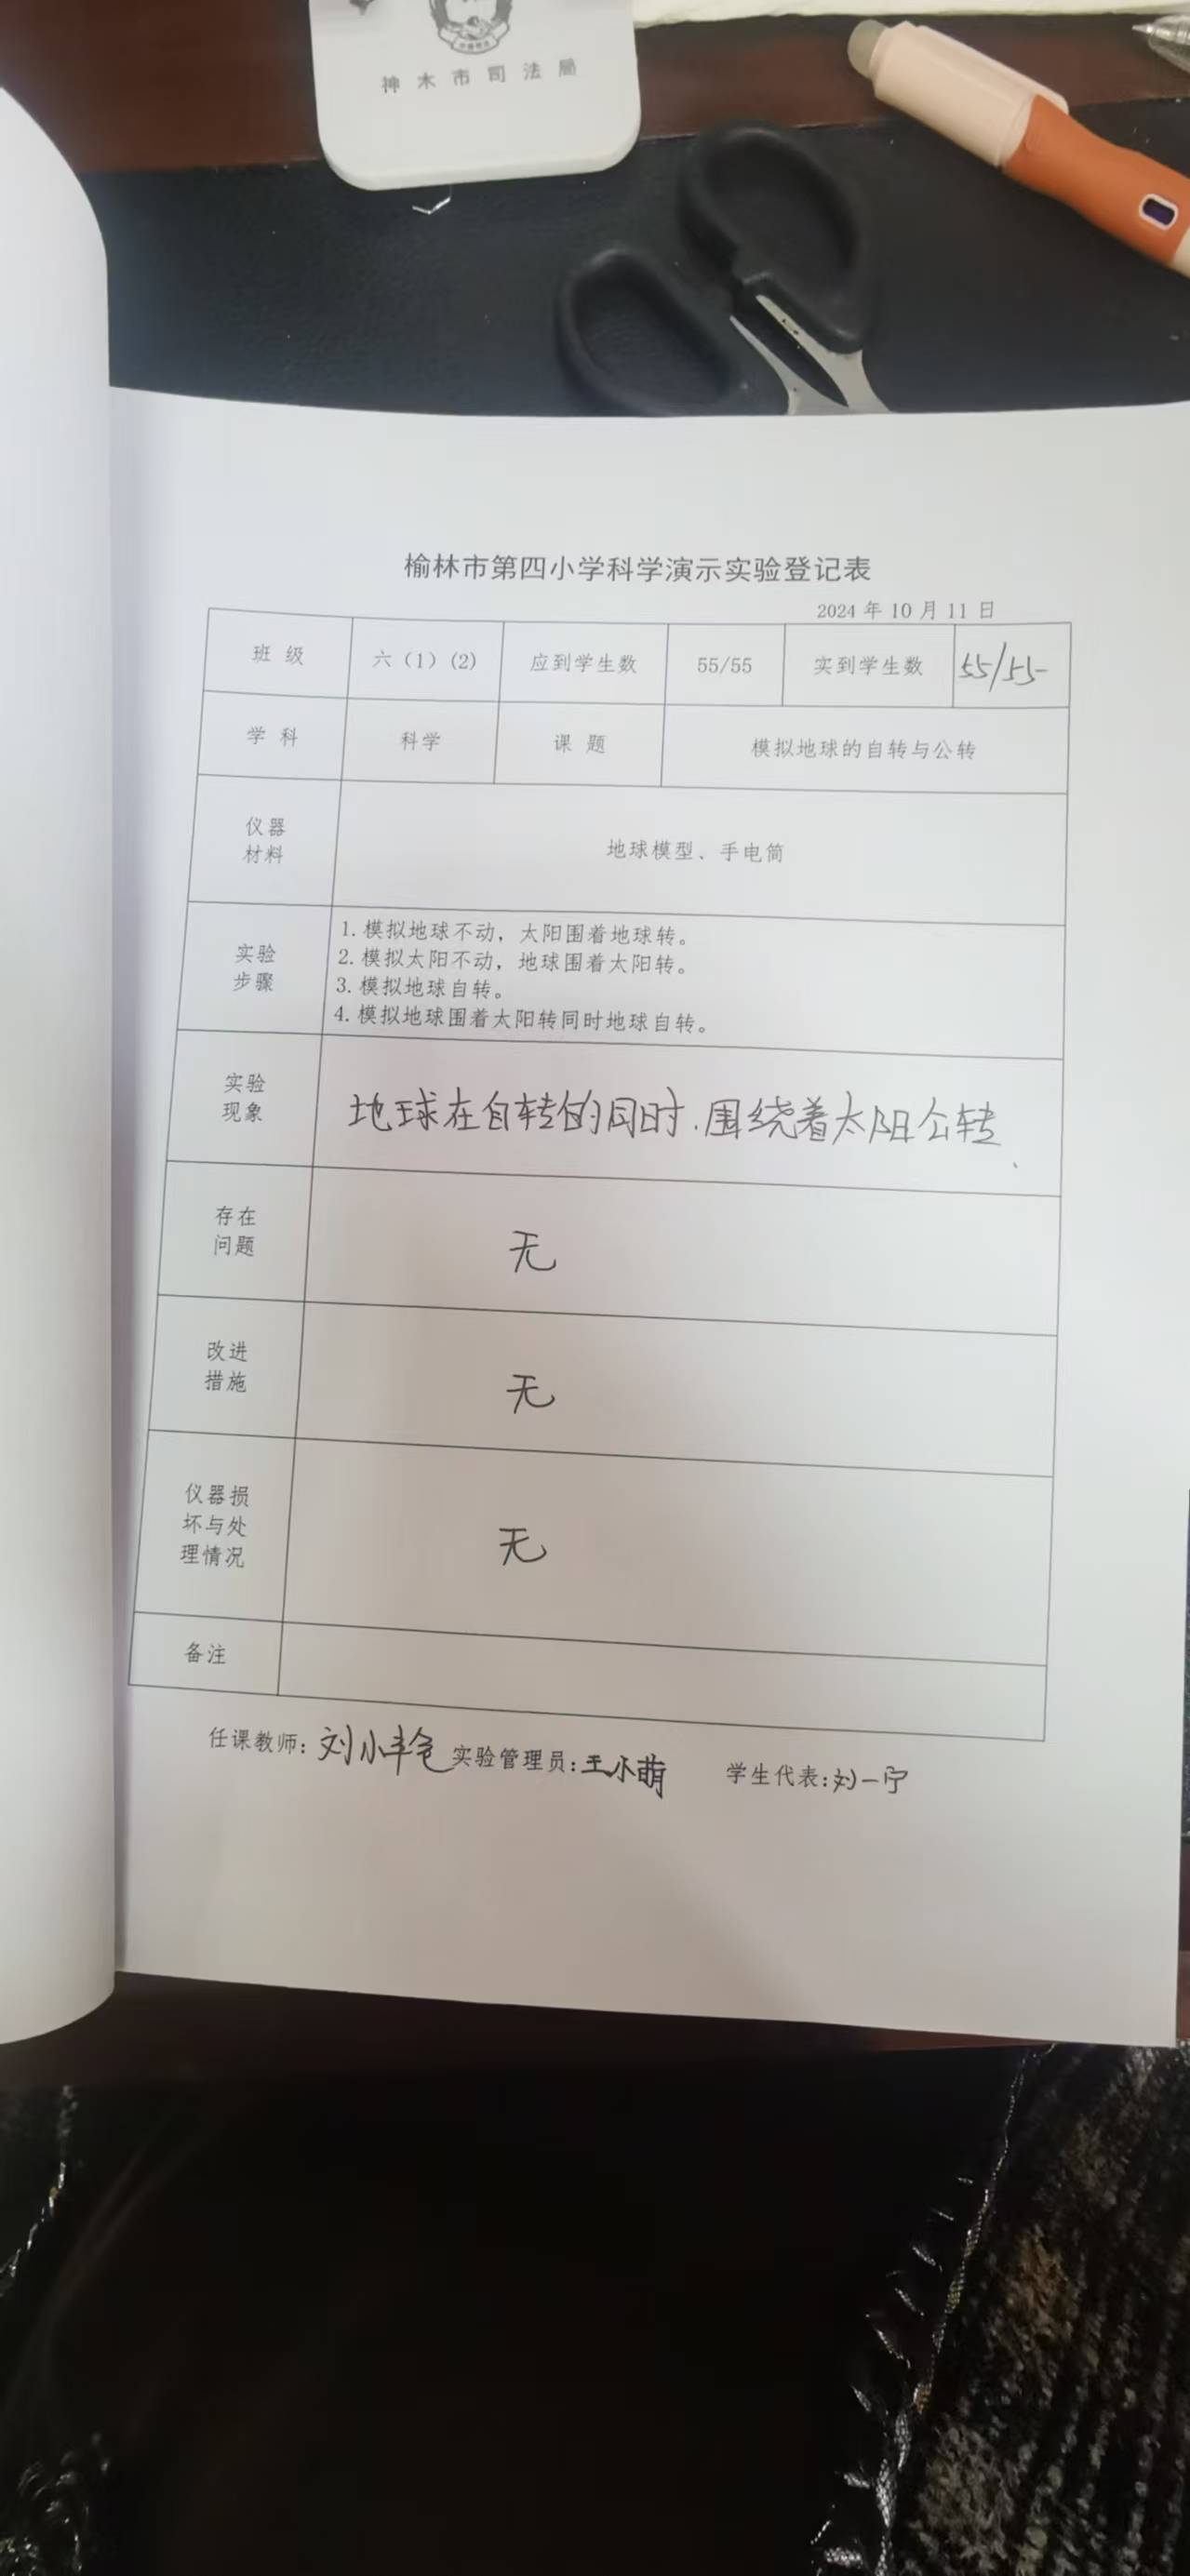 神木市司法局
榆林市第四小学科学演示实验登记表
2024 年 10 月 11 日
班 级 六（1）(2) 应到学生数 55/55 实到学生数 55/55
学 科 科学 课 题 模拟地球的自转与公转
仪器
材料
地球模型、手电筒
实验
步骤
1. 模拟地球不动，太阳围着地球转。
2. 模拟太阳不动，地球围着太阳转。
3. 模拟地球自转。
4. 模拟地球围着太阳转同时地球自转。
实验
现象
地球在自转的同时.围绕着太阳公转、
存在
问题
无
改进
措施
无
仪器损
坏与处
理情况
无
备注
任课教师：刘小艳 实验管理员：王小萌 学生代表：刘一宁